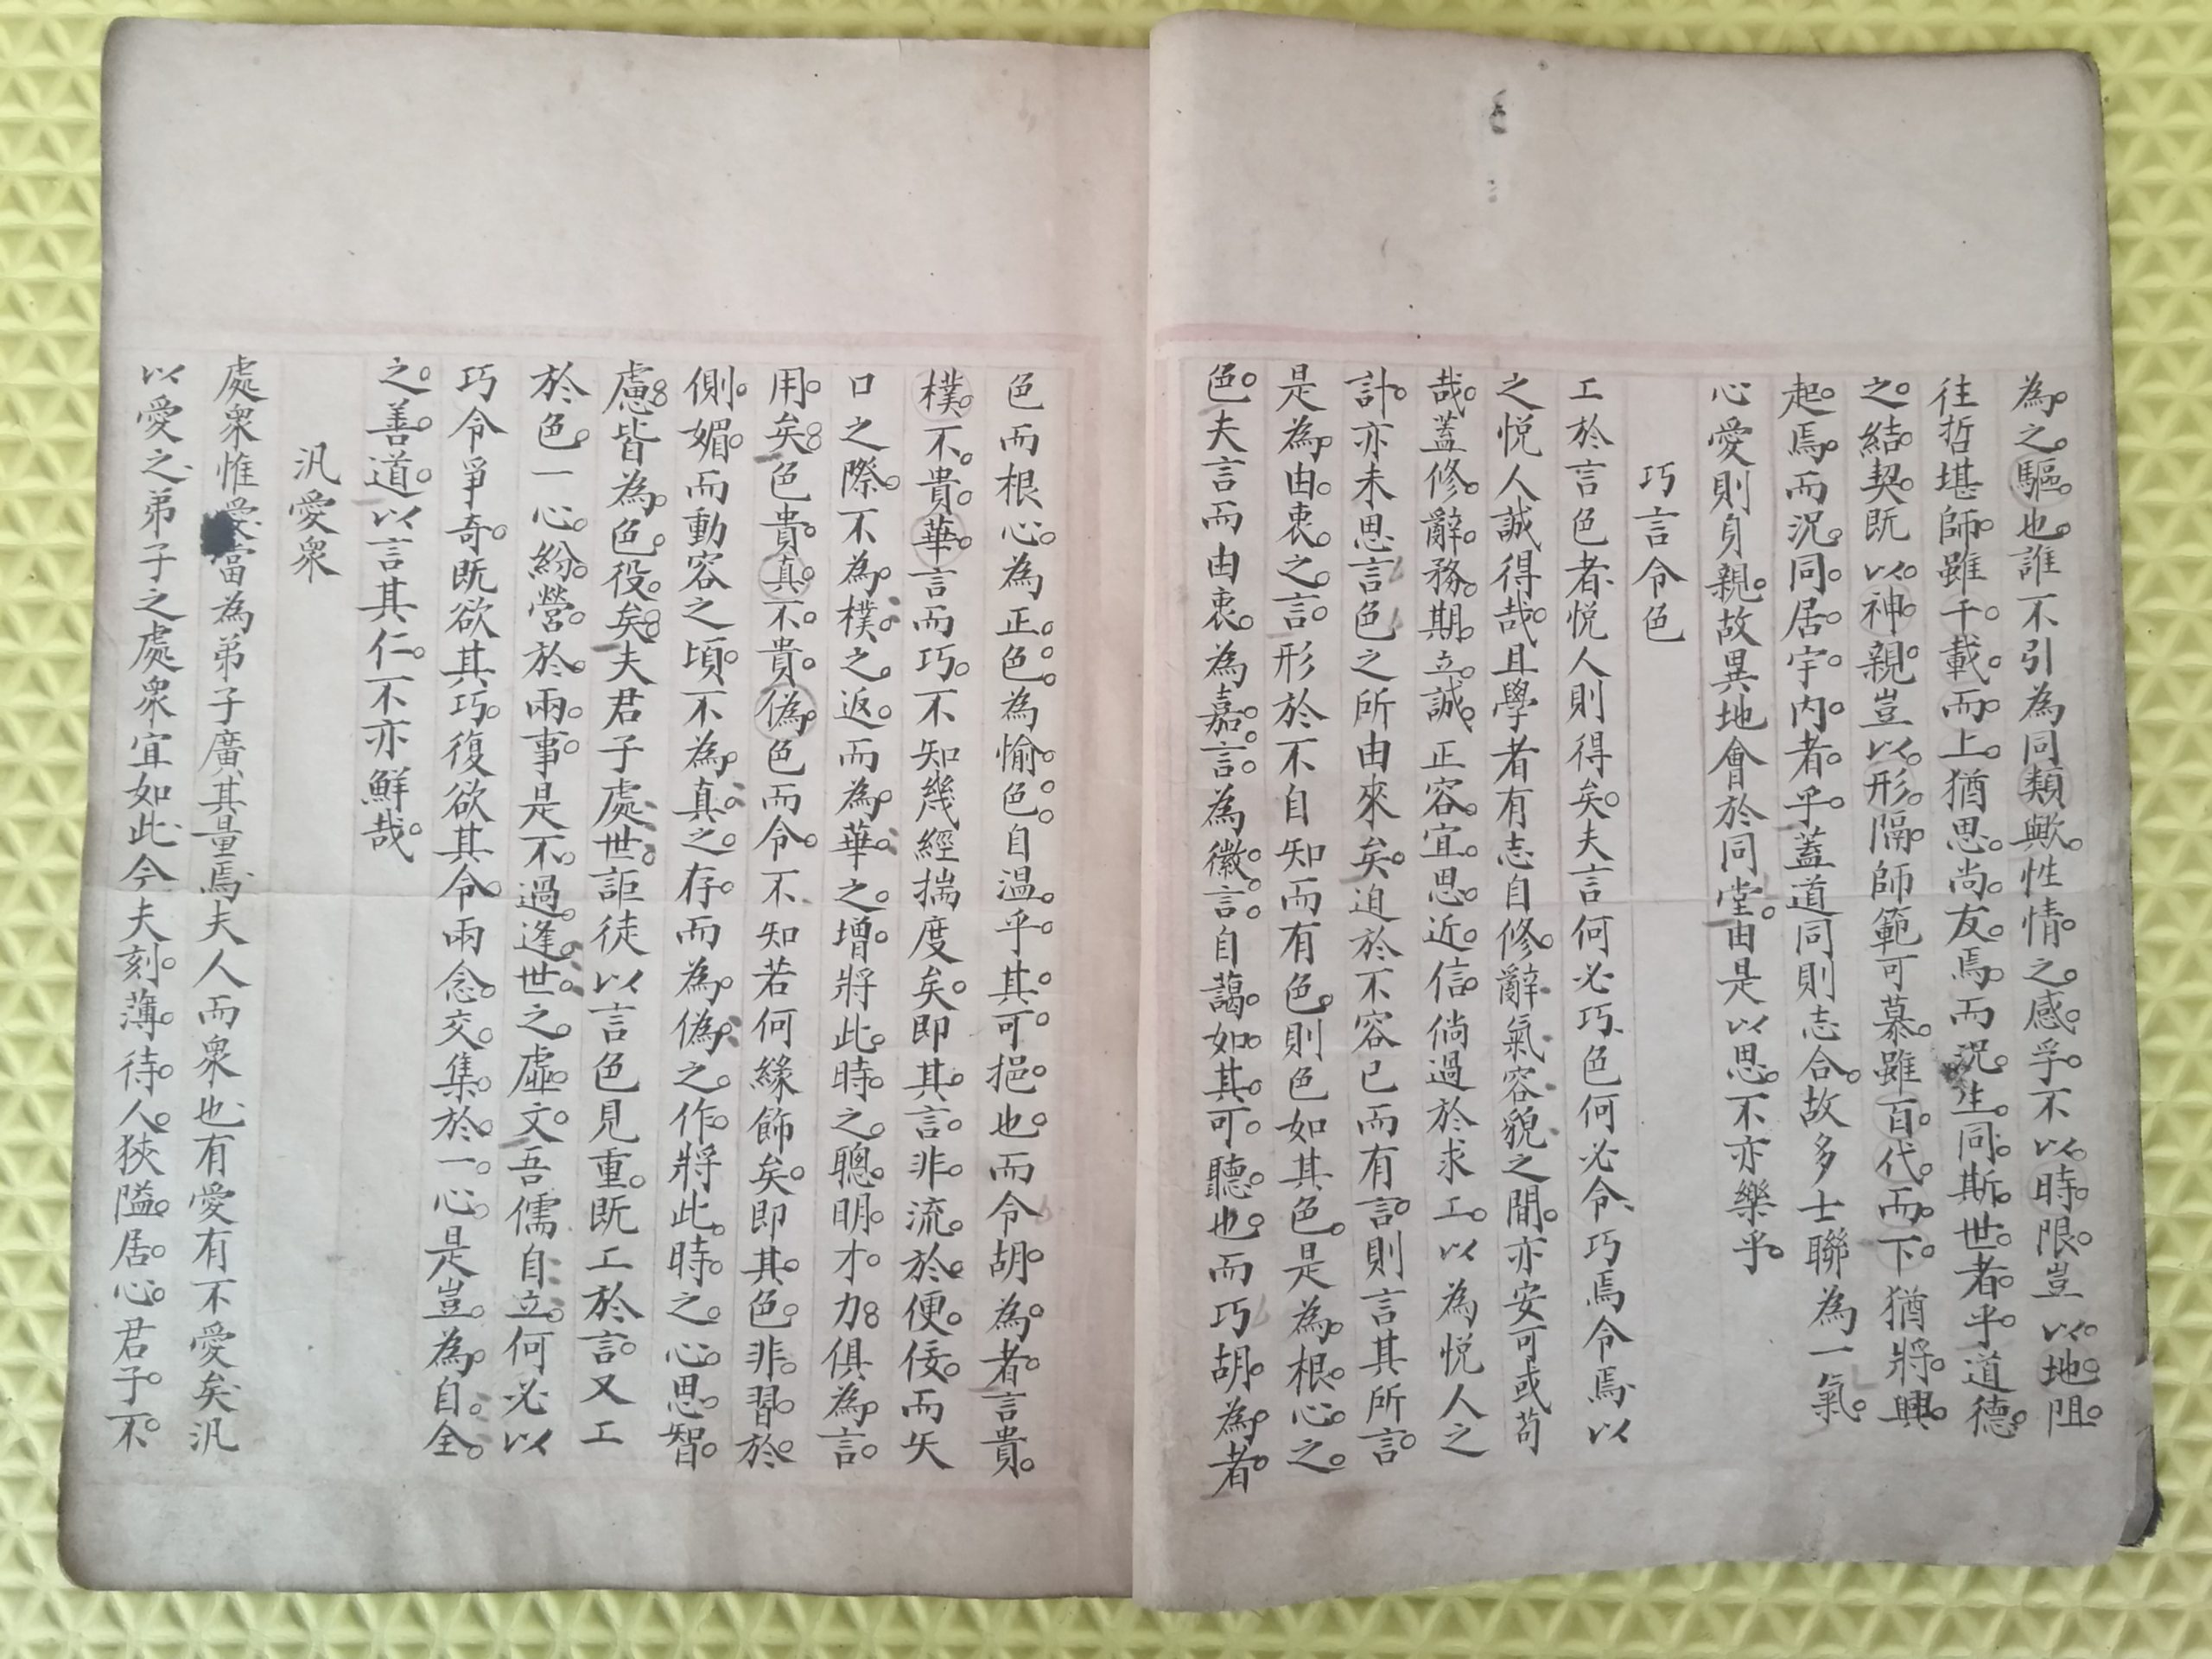 為之驅也誰不引為同類歟性情之感孚不以時限豈以地阻
往哲堪師雖千載而上猶思尚友焉而況生同斯世者乎道德
之結契既以神親豈以形隔師範可慕雖百代而下猶將興
起焉而況同居宇內者乎蓋道同則志合故多士聯為一氣
心愛則身親故異地會於同堂由是以思不亦樂乎
巧言令色
工於言色者悦人則得矣夫言何必巧色何必令巧焉令焉以
之悦人誠得哉且學者有志自修辭氣容貌之間亦安可或苟
哉蓋修辭務期立誠正容宜思近信倘過於求工以為悦人之
計亦未思言色之所由來矣迫於不容已而有言則言其所言
是為由衷之言形於不自知而有色則色如其色是為根心之
色夫言而由衷為嘉言為徽言自藹如其可聽也而巧胡為者
色而根心為正色為愉色自温乎其可挹也而令胡為者言貴
樸不貴華言而巧不知幾經揣度矣即其言非流於便佞而矢
口之際不為樸之返而為華之增將此時之聰明才力俱為言
用矣色貴真不貴偽色而令不知若何緣飾矣即其色非習於
側媚而動容之頃不為真之存而為偽之作將此時之心思智
慮皆為色役矣夫君子處世詎徒以言色見重既工於言又工
於色一心紛營於兩事是不過逢世之虛文吾儒自立何必以
巧令爭奇既欲其巧復欲其令兩念交集於一心是豈為自全
之善道以言其仁不亦鮮哉
汎愛衆
處衆惟愛當為弟子廣其量焉夫人而衆也有愛有不愛矣汎
以愛之弟子之處衆宜如此今夫刻薄待人狹隘居心君子不